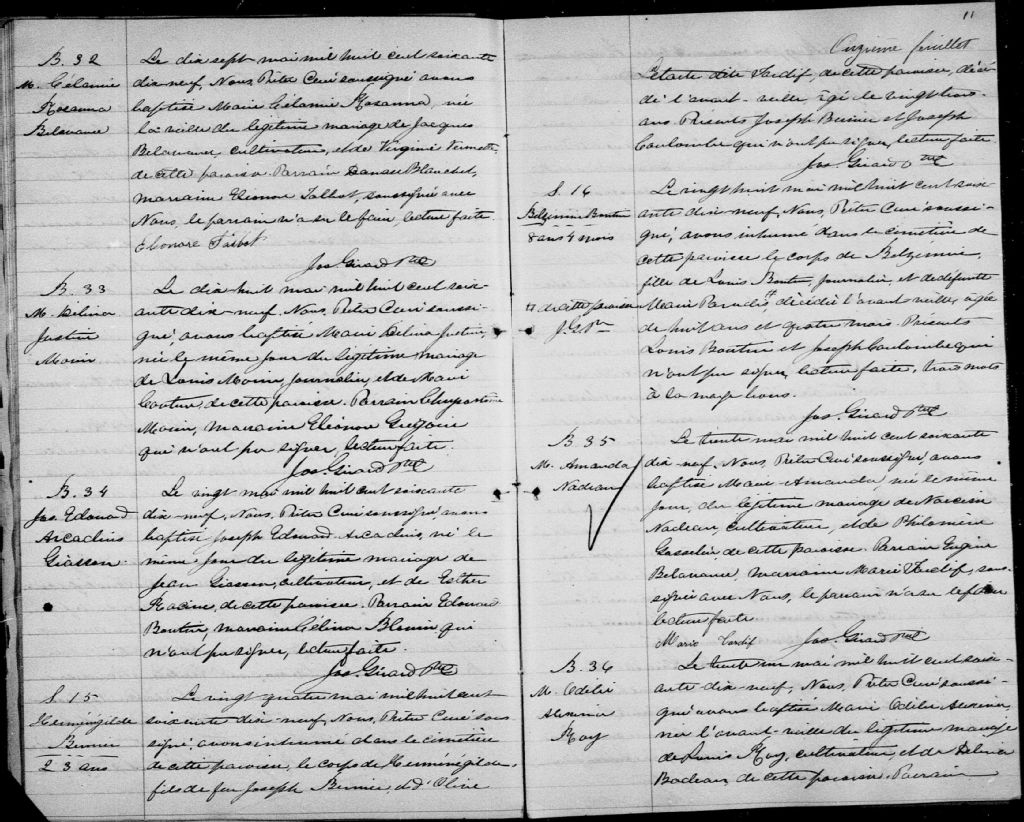 B. 32
M. Célanie
Rosanna
Belavance
Le dix sept mai mil huit cent soixante
dix-neuf, Nous, Prêtre Curé soussigné avons
baptisé Marie Célanie Rosanna, née
la veille du légitime mariage de Jacques
Belavance, cultivateur, et de Virginie
de cette paroisse. Parrain Damase Blanchet,
marraine Eléonore Talbot, soussignée avec
Nous, le parrain n'a su le faire, lecture faite.
Eléonore Talbot
Jos. Girard Ptre
B. 33
M. Délina
Justine
Morin
Le dix huit mai mil huit cent soix-
ante-dix-neuf, Nous, Prêtre Curé soussi-
gné, avons baptisé Marie Délina Justine,
née le même jour du légitime mariage
de Louis Morin, journalier, et de Marie
Couture, de cette paroisse. Parrain Chrysostôme
Morin, marraine Eléonore Grégoire
qui n'ont pu signer, lecture faite.
Jos. Girard Ptre
B. 34
Jos. Edouard
Arcadius
Giasson
Le vingt mai mil huit cent soixante
dix-neuf, Nous, Prêtre Curé soussigné avons
baptisé Joseph Edouard Arcadius, né le
même jour du légitime mariage de
Jean Giasson, cultivateur, et de Esther
Racine, de cette paroisse. Parrain Edouard
Boutin, marraine Célina Blouin qui
n'ont pu signer, lecture faite.
Jos. Girard Ptre
S. 15
Herménégilde
Bernier
23 ans
Le vingt quatre mai mil huit cent
soixante dix-neuf, Nous, Prêtre Curé sous
signé, avons inhumé dans le cimetière
de cette paroisse, le corps de Herménégilde,
fils de feu Joseph Bernier, et d'Olive
11
Onzième feuillet
dite Tardif, de cette paroisse, décé-
dé l'avant-veille, âgé de vingt trois
ans. Présents Joseph Bernier et Joseph
Coulombe qui n'ont pu signer, lecture faite.
Jos. Girard Ptre
S. 16
Belzémie Boutin
8 ans 4 mois
+ de cette paroisse
J. G. Ptre
Le vingt huit mai mil huit cent soix-
ante dix-neuf, Nous, Prêtre Curé soussi-
gné, avons inhumé dans le cimetière de
cette paroisse le corps de Belzémie,
fille de Louis Boutin, journalier, et de défunte
Marie Paradis, décédée l'avant veille, âgée
de huit ans et quatre mois. Présents
Louis Boutin et Joseph Coulombe qui
n'ont pu signer, lecture faite, trois mots
à la marge bons.
Jos. Girard Ptre
B. 35
M. Amanda
Nadeau
Le trente mai mil huit cent soixante
dix-neuf, Nous, Prêtre Curé soussigné, avons
baptisé Marie-Amanda, née le même
jour, du légitime mariage de Narcisse
Nadeau, cultivateur, et de Philomène
Gosselin de cette paroisse. Parrain Eugène
Belavance, marraine Marie Tardif, sous-
signée avec Nous, le parrain n'a su le faire
lecture faite.
Marie Tardif
Jos. Girard Ptre
B. 36
M. Odélie
Roy
Le trente un mai mil huit cent soix-
ante dix-neuf, Nous, Prêtre Curé soussi-
gné avons baptisé Marie Odélie
née l'avant-veille du légitime mariage
de Louis Roy, cultivateur, et de Délina
de cette paroisse. Parrain